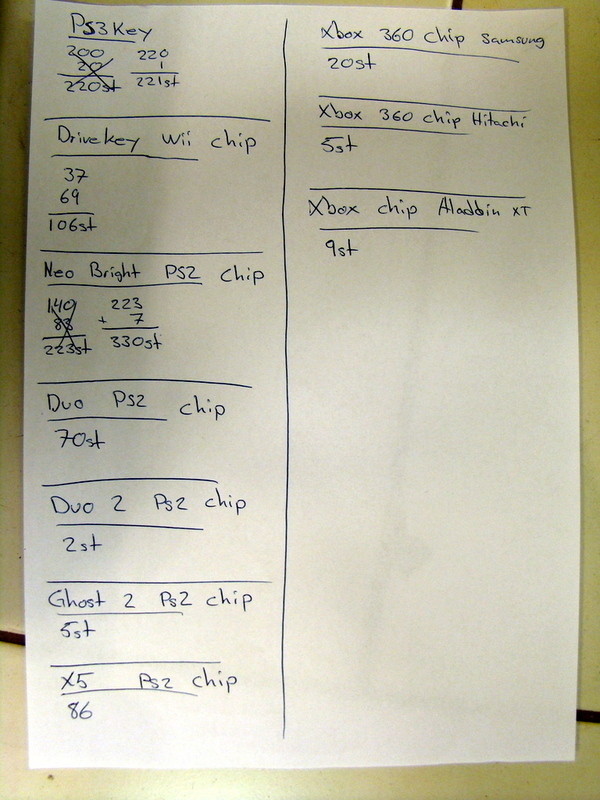 PS3Key
200 220
20 1
220st 221st
Drivekey Wii chip
37
69
106st
Neo Bright PS2 chip
140 223
83 + 7
223st 330st
Duo PS2 chip
70st
Duo 2 Ps2 chip
2st
Ghost 2 Ps2 chip
5st
X5 Ps2 chip
86
Xbox 360 chip Samsung
20st
Xbox 360 chip Hitachi
5st
Xbox chip Aladdin XT
9st